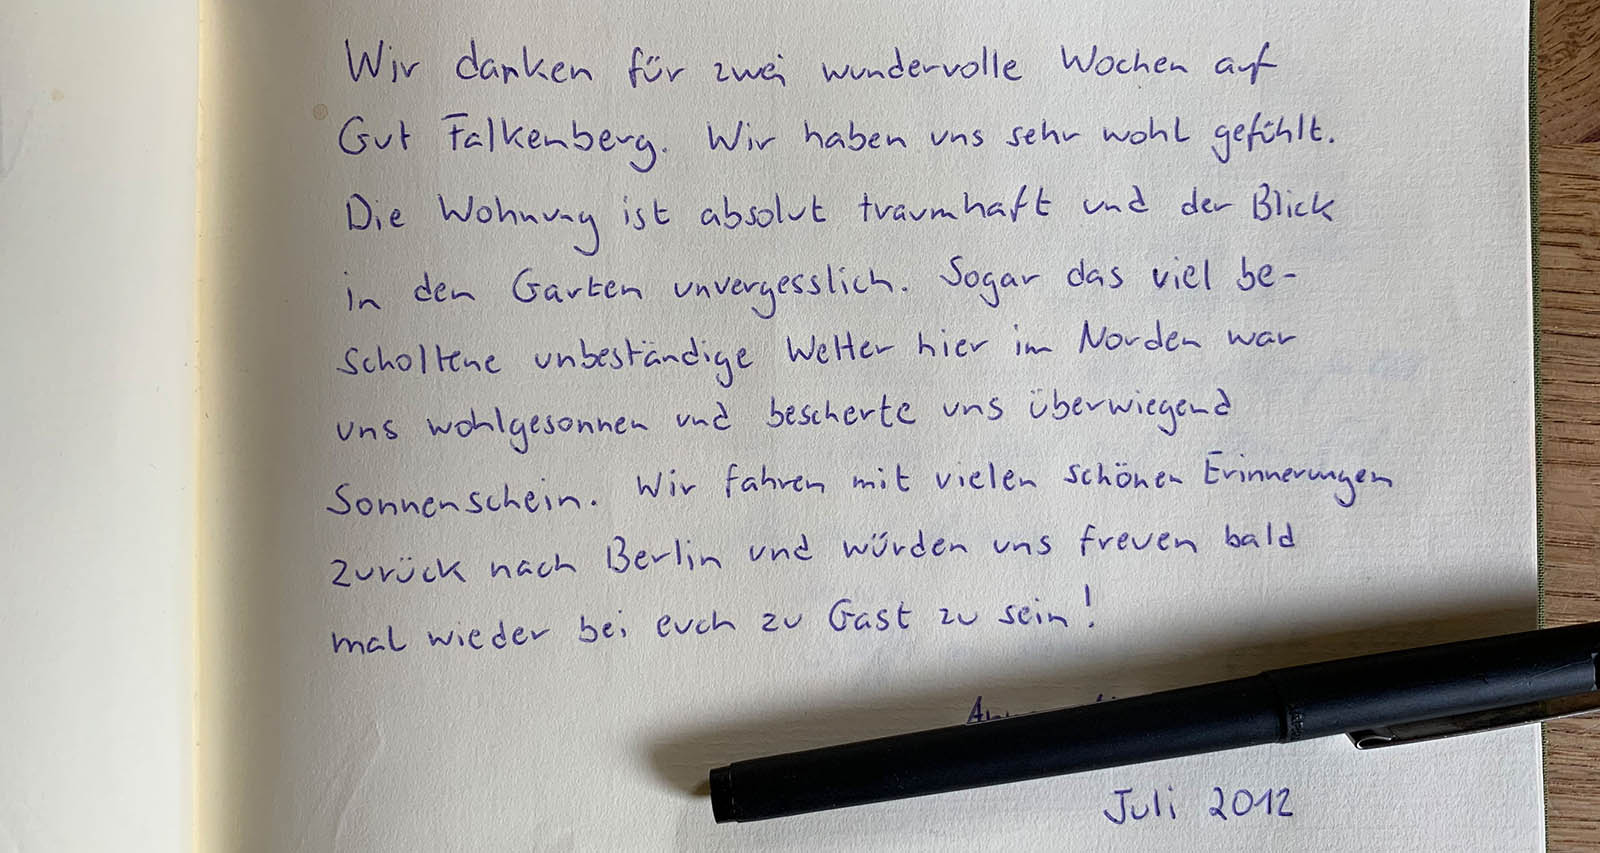 Wir danken für zwei wundervolle Wochen auf
Gut Falkenberg. Wir haben uns sehr wohl gefühlt.
Die Wohnung ist absolut traumhaft und der Blick
in den Garten unvergesslich. Sogar das viel be-
scholtene unbeständige Wetter hier im Norden war
uns wohlgesonnen und bescherte uns überwiegend
Sonnenschein. Wir fahren mit vielen schönen Erinnerungen
zurück nach Berlin und würden uns freuen bald
mal wieder bei euch zu Gast zu sein!
Juli 2012